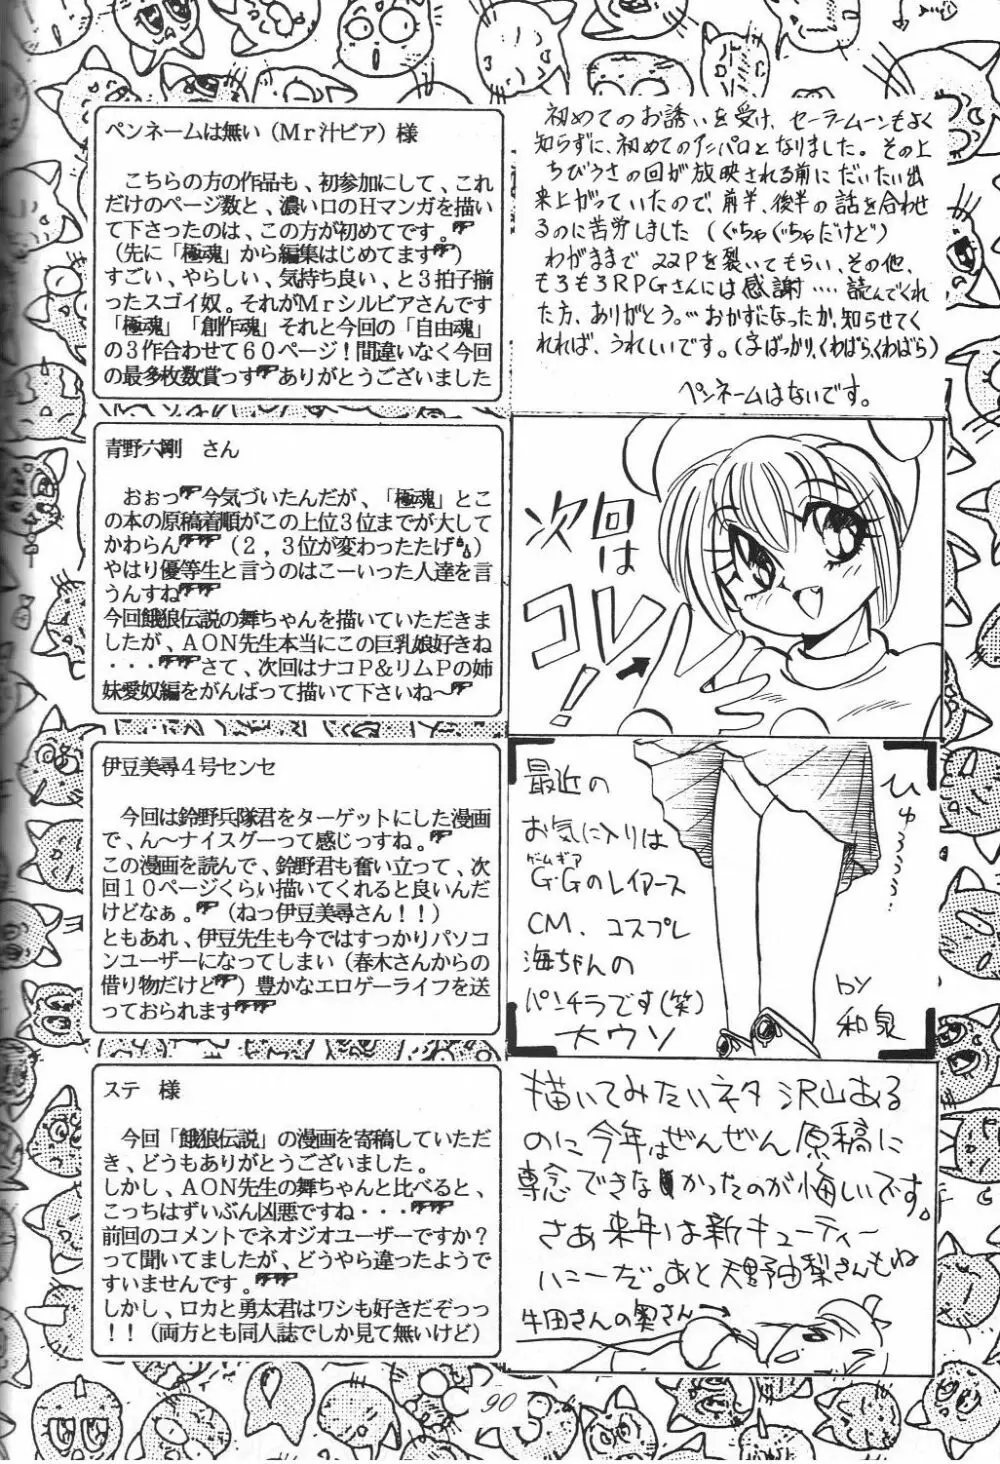 ペンネームは無い（Mr汁ビア）様
こちらの方の作品も、初参加にして、これ
だけのページ数と、濃い口のHマンガを描い
て下さったのは、この方が初めてです。
（先に「極魂」から編集はじめてます）
すごい、やらしい、気持ち良い、と３拍子揃
ったスゴイ奴。それがMrシルビアさんです
「極魂」「創作魂」それと今回の「自由魂」
の３作合わせて６０ページ！間違いなく今回
の最多枚数賞っす ありがとうございました
初めてのお誘いを受け、セーラームーンもよく
知らずに、初めてのアニパロとなりました。その上
ちびうさの回が放映される前にだいたい出
来上がっていたので、前半、後半の話を合わせ
るのに苦労しました（ぐちゃぐちゃだけど）
わがままで22Pを裂いてもらい、その他、
もろもろRPGさんには感謝‥‥読んでくれ
た方、ありがとう。…おかずになったか、知らせてく
れれば、うれしいです。（まばっかり、くわばら、くわばら）
ペンネームはないです。
青野六剛　さん
おぉっ 今気づいたんだが、「極魂」とこ
の本の原稿着順がこの上位３位までが大して
かわらん （２，３位が変わったたげ）
やはり優等生と言うのはこーいった人達を言
うんすね
今回餓狼伝説の舞ちゃんを描いていただきま
したが、AON先生本当にこの巨乳娘好きね
・・・ さて、次回はナコP＆リムPの姉
妹愛奴編をがんばって描いて下さいね～
次回は
コレ!
伊豆美尋４号センセ
今回は鈴野兵隊君をターゲットにした漫画
で、ん～ナイスグーって感じっすね。
この漫画を読んで、鈴野君も奮い立って、次
回１０ページくらい描いてくれると良いんだ
けどなぁ。（ねっ伊豆美尋さん！！）
ともあれ、伊豆先生も今ではすっかりパソコ
ンユーザーになってしまい（春木さんからの
借り物だけど）豊かなエロゲーライフを送
っておられます
最近の
お気に入りは
ゲームギア
G・Gのレイアース
CM、コスプレ
海ちゃんの
パンチラです(笑)
大ウソ
ひゅうううう…
by
和泉
ステ　様
今回「餓狼伝説」の漫画を寄稿していただ
き、どうもありがとうございました。
しかし、AON先生の舞ちゃんと比べると、
こっちはずいぶん凶悪ですね・・・
前回のコメントでネオジオユーザーですか？
って聞いてましたが、どうやら違ったようで
すいませんです。
しかし、ロカと勇太君はワシも好きだぞっっ
！！（両方とも同人誌でしか見て無いけど）
描いてみたいネタ沢山ある
のに今年はぜんぜん原稿に
専念できなかったのが悔しいです。
さぁ来年は新キューティー
ハニーだ。あと天野由梨さんもね
牛田さんの奥さん→
90